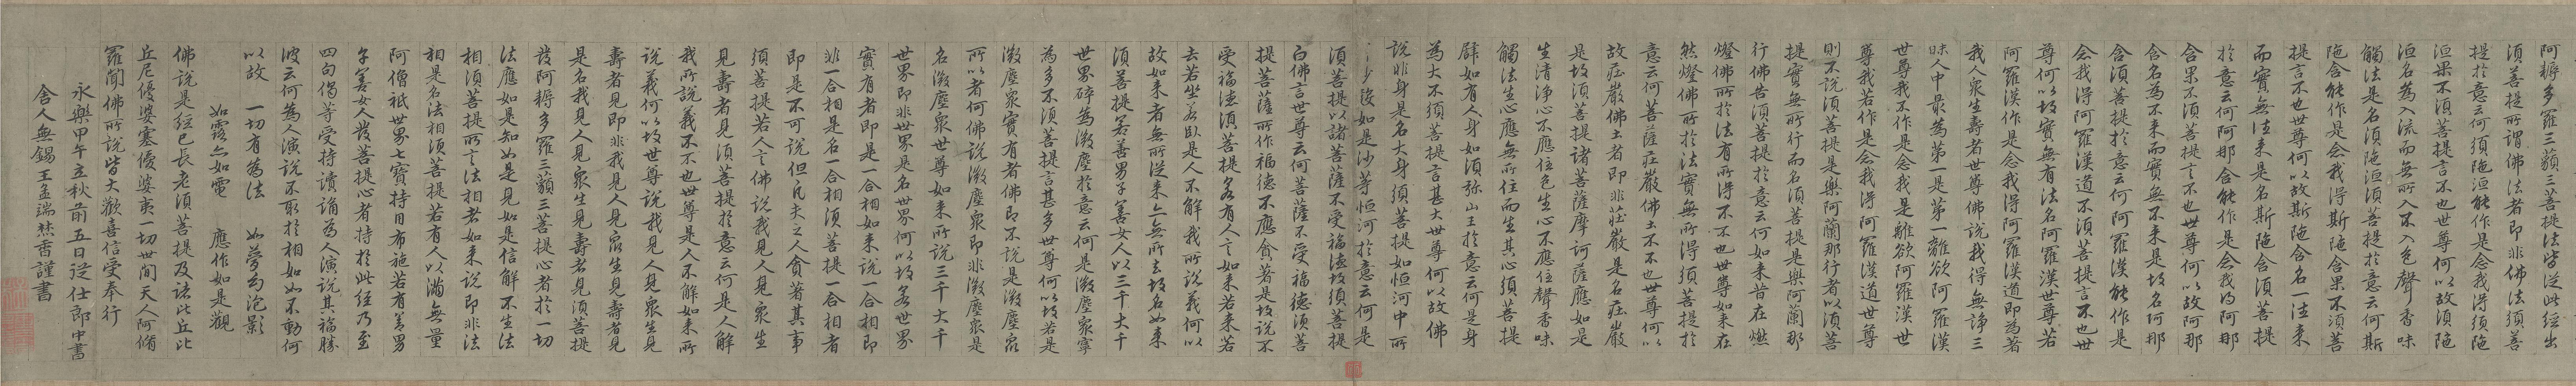 阿耨多羅三藐三菩提法皆從此經出
須菩提所謂佛法者即非佛法須菩
提於意云何須陁洹能作是念我得須陁
洹果不須菩提言不也世尊何以故須陁
洹名為入流而無所入不入色聲香味
觸法是名須陁洹須菩提於意云何斯
陁含能作是念我得斯陁含果不須菩
提言不也世尊何以故斯陁含名一往来
而實無往来是名斯陁含須菩提
於意云何阿那含能作是念我得阿那
含果不須菩提言不也世尊何以故阿那
含名為不来而實無不来是故名阿那
含須菩提於意云何阿羅漢能作是
念我得阿羅漢道不須菩提言不也世
尊何以故實無有法名阿羅漢世尊若
阿羅漢作是念我得阿羅漢道即為著
我人衆生壽者世尊佛說我得無諍三
昧人中最為第一是第一離欲阿羅漢
世尊我不作是念我是離欲阿羅漢世
尊我若作是念我得阿羅漢道世尊
則不說須菩提是樂阿蘭那行者以須菩
提實無所行而名須菩提是樂阿蘭那
行佛告須菩提於意云何如来昔在燃
燈佛所於法有所得不不也世尊如来在
然燈佛所於法實無所得須菩提於
意云何菩薩莊嚴佛土不不也世尊何以
故莊嚴佛土者即非莊嚴是名莊嚴
是故須菩提諸菩薩摩訶薩應如是
生清淨心不應住色生心不應住聲香味
觸法生心應無所住而生其心須菩提
譬如有人身如須弥山王於意云何是身
為大不須菩提言甚大世尊何以故佛
說非身是名大身須菩提如恒河中所
如是沙等恒河於意云何是
須菩提以諸菩薩不受福德故須菩提
白佛言世尊云何菩薩不受福德須菩
提菩薩所作福德不應貪著是故說不
受福德須菩提若有人言如来若来若
去若坐若卧是人不解我所說義何以
故如来者無所從来亦無所去故名如来
須菩提若善男子善女人以三千大千
世界碎為微塵於意云何是微塵衆寧
為多不須菩提言甚多世尊何以故若是
微塵衆實有者佛即不說是微塵衆
所以者何佛說微塵衆即非微塵衆是
名微塵衆世尊如来所說三千大千
世界即非世界是名世界何以故若世界
實有者即是一合相如来說一合相即
非一合相是名一合相須菩提一合相者
即是不可說但凡夫之人貪著其事
須菩提若人言佛說我見人見衆生
見壽者見須菩提於意云何是人解
我所說義不不也世尊是人不解如来所
說義何以故世尊說我見人見衆生見
壽者見即非我見人見衆生見壽者見
是名我見人見衆生見壽者見須菩提
發阿耨多羅三藐三菩提心者於一切
法應如是知如是見如是信解不生法
相須菩提所言法相者如来說即非法
相是名法相須菩提若有人以滿無量
阿僧祇世界七寶持用布施若有善男
子善女人發菩提心者持於此經乃至
四句偈等受持讀誦為人演說其福勝
彼云何為人演說不取於相如如不動何
以故 一切有為法 如夢幻泡影
如露亦如電 應作如是觀
佛說是經已長老須菩提及諸比丘比
丘尼優婆塞優婆夷一切世間天人阿脩
羅聞佛所說皆大歡喜信受奉行
永樂甲午立秋前五日從仕郎中書
舍人無錫王孟端焚香謹書